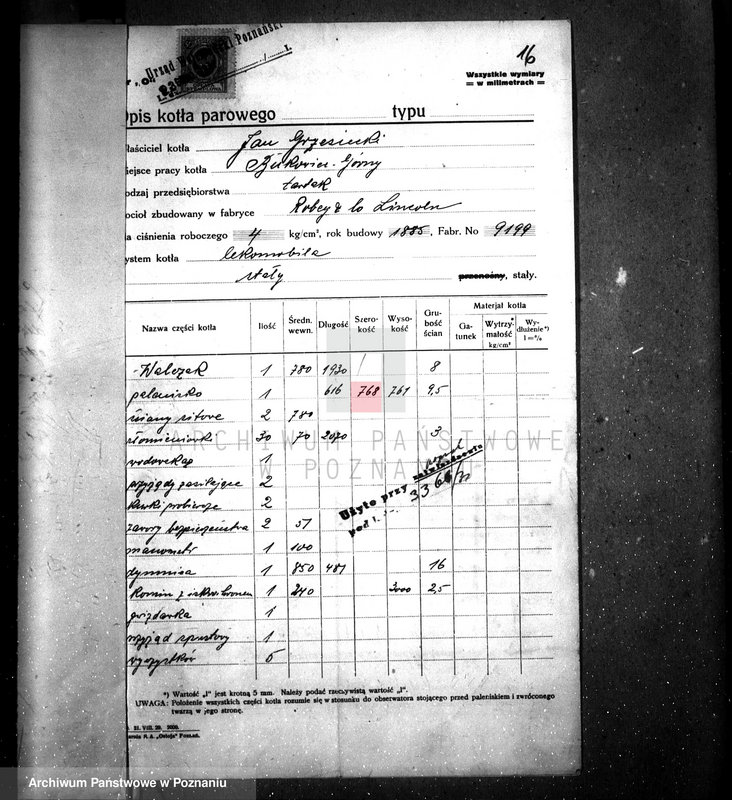 16
Urząd Wojewódzki Poznański
Wszystkie wymiary
= w milimetrach =
Opis kotła parowego typu
Właściciel kotła Jan Grzesiecki
Miejsce pracy kotła Górny
Rodzaj przedsiębiorstwa tartak
Kocioł zbudowany w fabryce Robey & Co Lincoln
Na ciśnienia roboczego 4 kg/cm², rok budowy 1885, Fabr. No 9199
System kotła lokomobila
stały przenośny, stały.
Nazwa części kotła Ilość Średn. wewn. Długość Szerokość Wysokość Grubość ścian Materjał kotła Gatunek Wytrzymałość kg/cm² Wydłużenie*) l = %
Walczak 1 780 1930 / 8
palenisko 1 616 768 761 9,5
ściany sitowe 2 780
płomieniówki 30 70 2070 3
wodowskaz 1
przyrządy zasilające 2
kurki probiercze 2
zawory bezpieczeństwa 2 51
manometr 1 100
dymnica 1 850 481 16
komin z iskrochronem 1 240 3000 2,5
gwizdawka 1
przyrząd spustowy 1
wyczystków 5
Użyto przy
ARCHIWUM PAŃSTWOWE
W POZNANIU
*) Wartość „l" jest krotną 5 mm. Należy podać rzeczywistą wartość „l".
UWAGA: Położenie wszystkich części kotła rozumie się w stosunku do obserwatora stojącego przed paleniskiem i zwróconego
twarzą w jego stronę.
31. VIII. 29. 2000.
R. A. „Ostoja" Poznań.
Archiwum Państwowe w Poznaniu